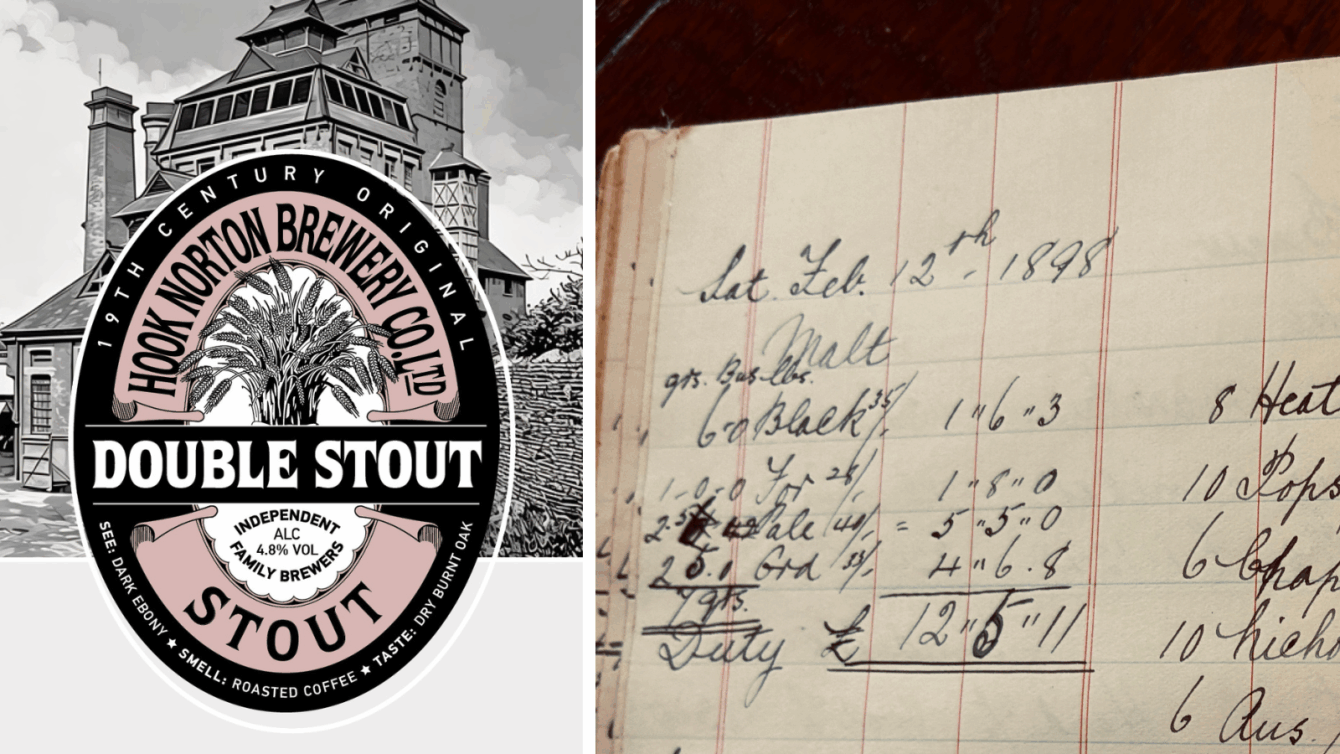 19TH CENTURY ORIGINAL
HOOK NORTON BREWERY CO. LTD
DOUBLE STOUT
INDEPENDENT
ALC
4.8% VOL
FAMILY BREWERS
STOUT
SEE: DARK EBONY ★ SMELL: ROASTED COFFEE ★ TASTE: DRY BURNT OAK
Sat. Feb. 12th. 1898
Malt
qrs. Bus. lbs.
6-0 Black 35/. 1"6"3
8 Heat
1-0-0 For 28/. 1"8"0
10 Pops
Pale 40/. = 5"5"0
2 5.0 Ord 35/. 4"6.8
6 Chap
7 qrs.
Duty £ 12"5"11
10 Nicho
6 Aus.